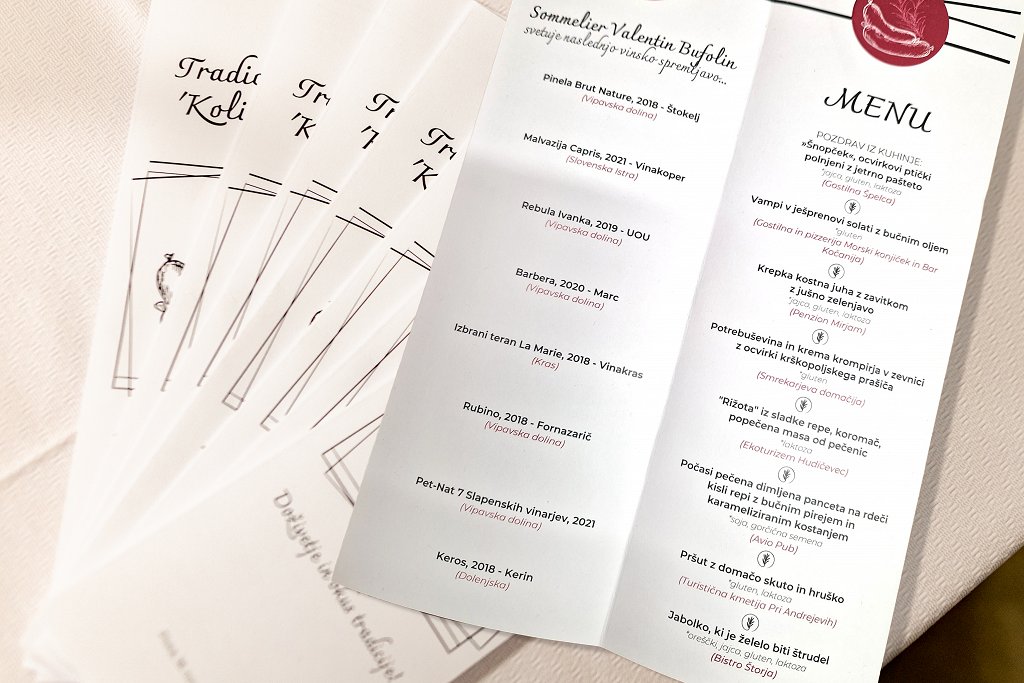 Tradic
'Koli
Tr
'K
Tr
'T
Tr
'K
Doživetje in okus tradicije!
Sommelier Valentin Bufolin
svetuje naslednjo vinsko spremljavo...
Pinela Brut Nature, 2018 - Štokelj
(Vipavska dolina)
Malvazija Capris, 2021 - Vinakoper
(Slovenska Istra)
Rebula Ivanka, 2019 - UOU
(Vipavska dolina)
Barbera, 2020 - Marc
(Vipavska dolina)
Izbrani teran La Marie, 2018 - Vinakras
(Kras)
Rubino, 2018 - Fornazarič
(Vipavska dolina)
Pet-Nat 7 Slapenskih vinarjev, 2021
(Vipavska dolina)
Keros, 2018 - Kerin
(Dolenjska)
MENU
POZDRAV IZ KUHINJE:
»Šnopček«, ocvirkovi ptički
polnjeni z jetrno pašteto
*jajca, gluten, laktoza
(Gostilna Špelca)
Vampi v ješprenovi solati z bučnim oljem
*gluten
(Gostilna in pizzerija Morski konjiček in Bar
Kočanija)
Krepka kostna juha z zavitkom
z jušno zelenjavo
*jajca, gluten, laktoza
(Penzion Mirjam)
Potrebuševina in krema krompirja v zevnici
z ocvirki krškopoljskega prašiča
*gluten
(Smrekarjeva domačija)
"Rižota" iz sladke repe, koromač,
popečena masa od pečenic
*laktoza
(Ekoturizem Hudičevec)
Počasi pečena dimljena panceta na rdeči
kisli repi z bučnim pirejem in
karameliziranim kostanjem
*soja, gorčična semena
(Avio Pub)
Pršut z domačo skuto in hruško
*gluten, laktoza
(Turistična kmetija Pri Andrejevih)
Jabolko, ki je želelo biti štrudel
*oreščki, jajca, gluten, laktoza
(Bistro Štorja)